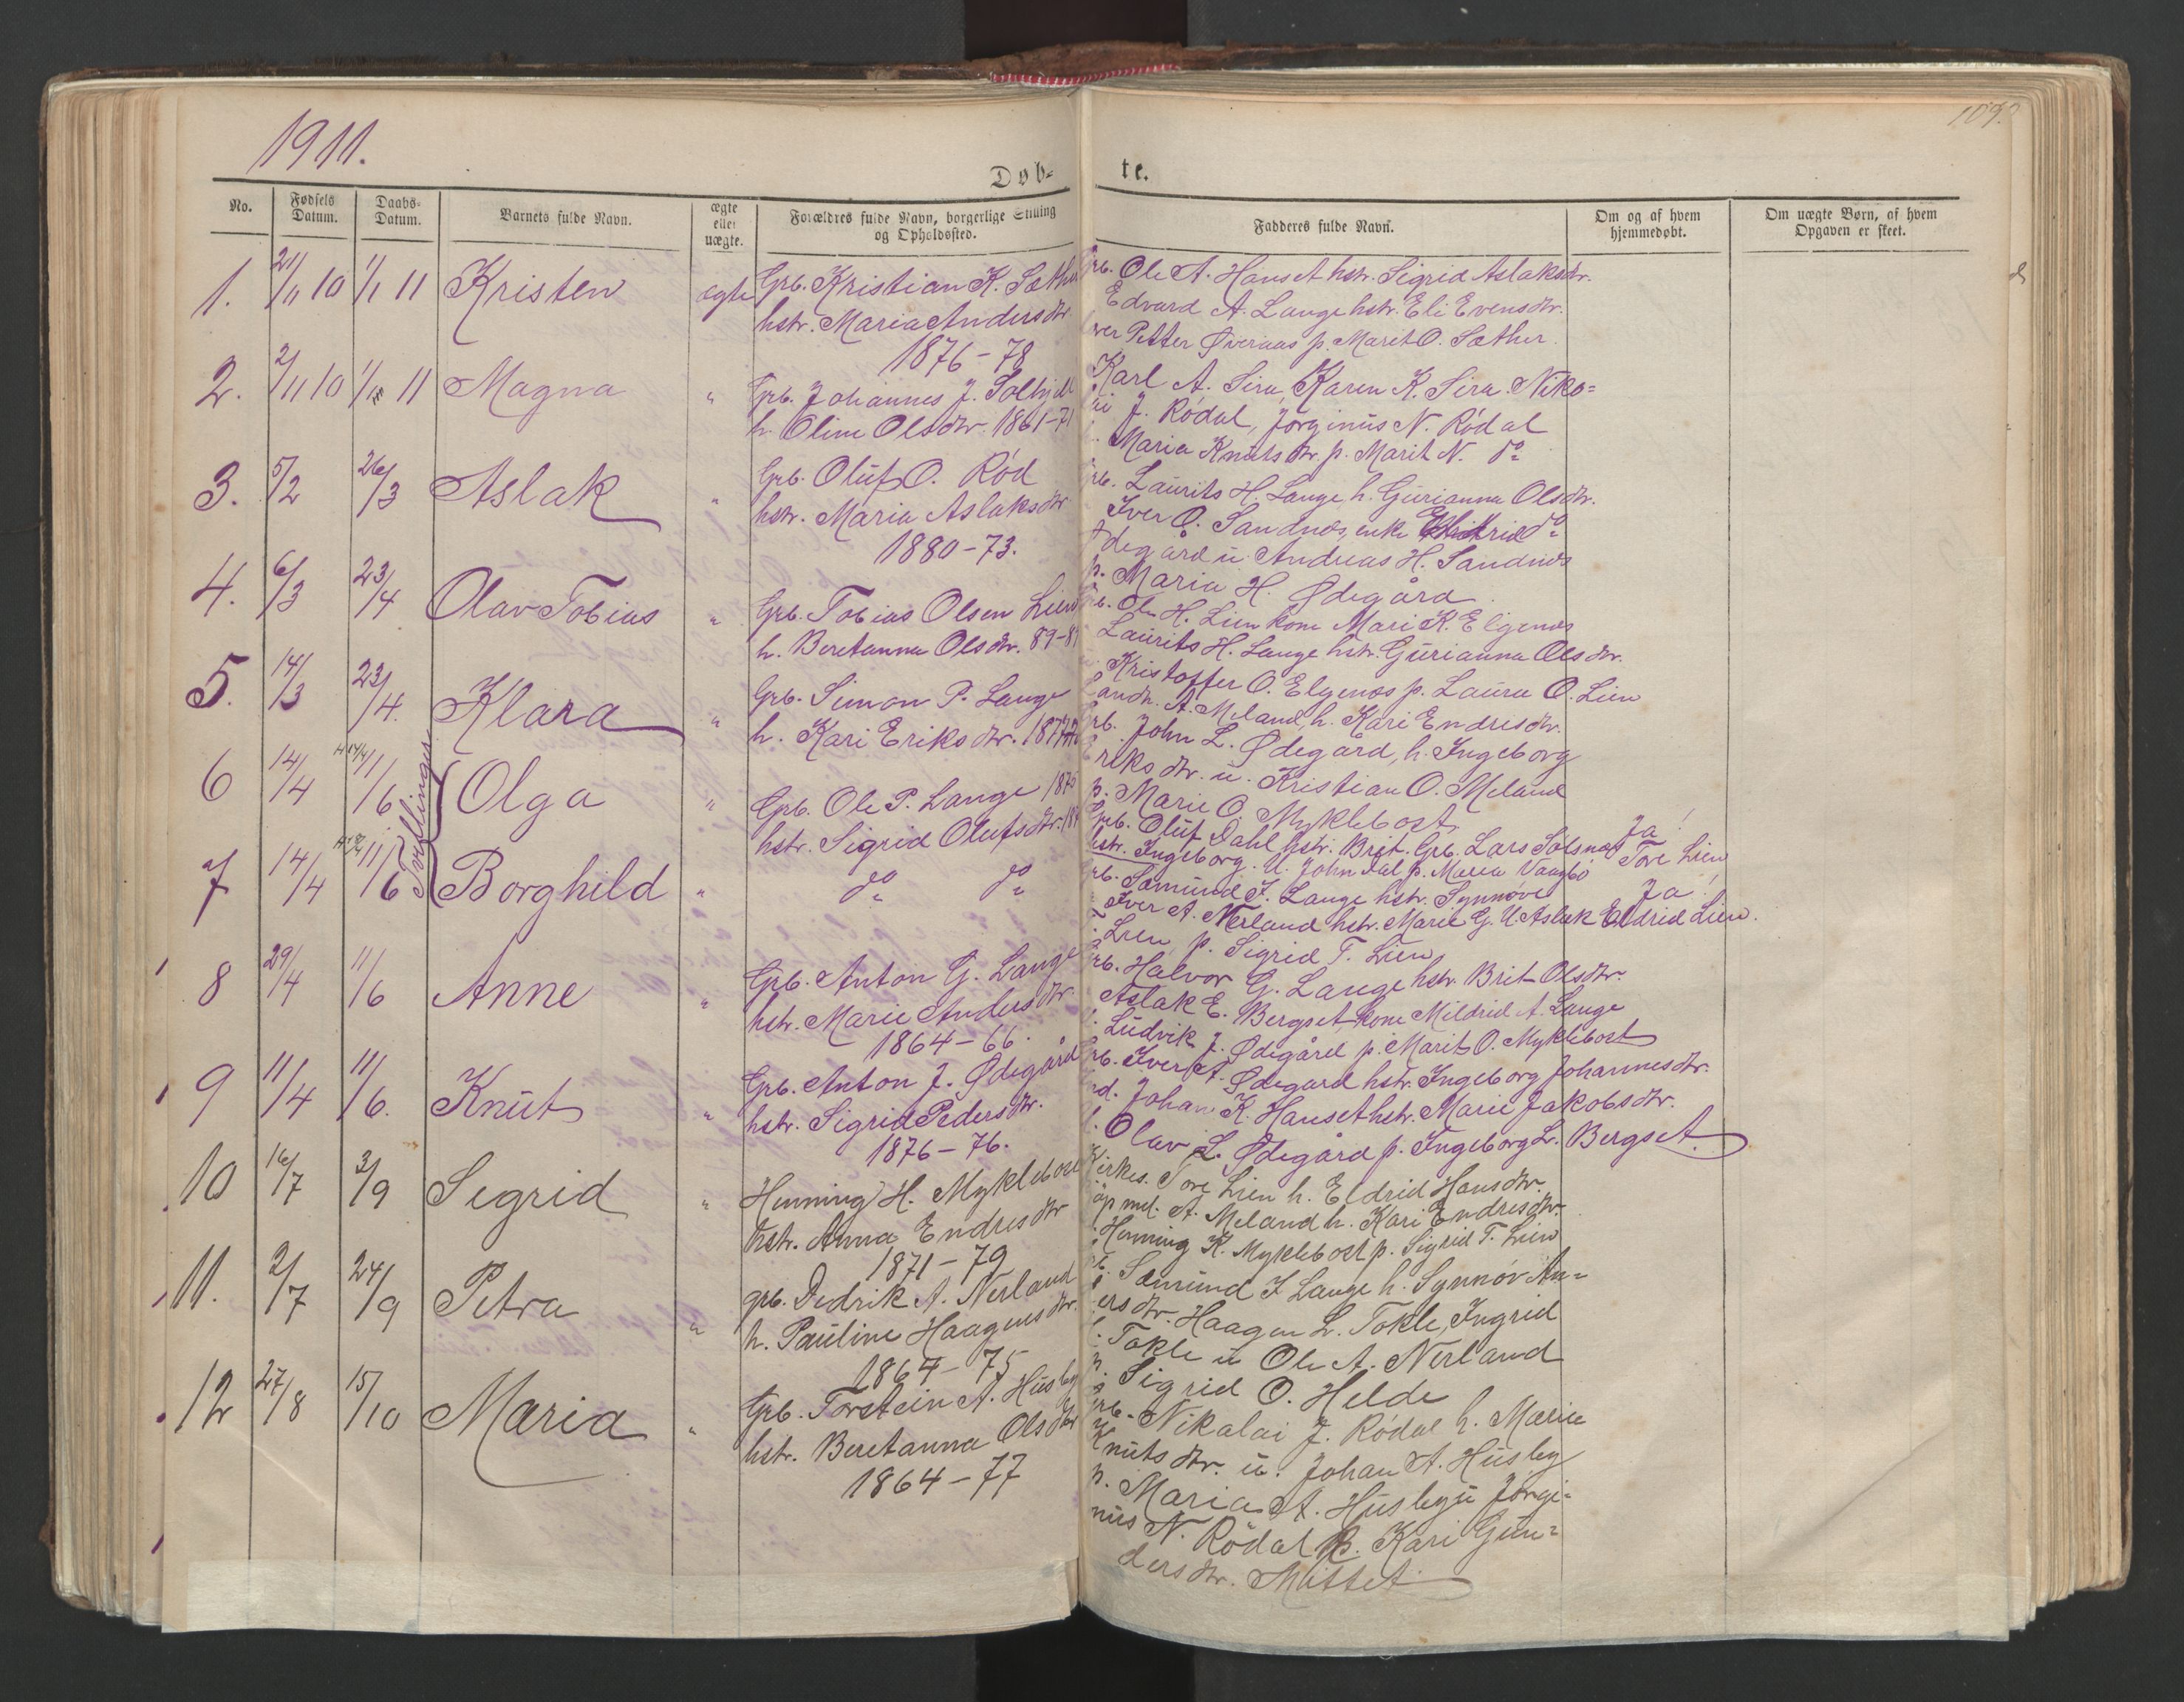 1911.
Døb-
te.
No.
Fødsels Datum.
Daabs-Datum.
Barnets fulde Navn.
ægte eller uægte.
Forældres fulde Navn, borgerlige Stilling og Opholdssted.
Fadderes fulde Navn.
Om og af hvem hjemmedøbt.
Om uægte Børn, af hvem Opgaven er skeet.
1. 21/11 10 1/1 11 Kristen ægte Grb. Kristian K. Sæther
hstr. Maria Andersdtr.
1876-78
2. 2/11 10 11 Magna " Grb. Johannes J. Solhjell
h. Oline Olsdtr. 1861-71
3. 5/2 26/3 Aslak " Grb. Oluf O. Rød
hstr. Maria Aslaksdtr
1880-73.
4. 6/3 23/4 Olav Tobias " Grb. Tobias Olsen Lien
h. Beretanna Olsdtr. 89-8
5. 14/3 23/4. Klara " Grb. Simon P. Lange
h. Kari Eriksdtr.
6 14/4 11/6 Olga " Grb. Ole P. Lange 187
hstr. Sigrid Olufsdtr. 18
Tvillinger
7 14/4 11/6 Borghild " do do
8 29/4 11/6 Anne " Grb. Anton G. Lange
hstr. Marie Andersdtr.
1864-66.
9 11/4 11/6. Knut " Grb. Anton J. Ødegård
hstr. Sigrid Pedersdtr.
1876-76.
10 16/7 3/9 Sigrid " Henning H. Myklebost
hstr. Anna Endresdtr
1871-79
11. 2/7 24/9 Petra " grb. Didrik A. Nerland
h. Pauline Haagensdtr.
1864-75
12 27/8 15/10 Maria " Grb. Torstein A. Husby
hstr. Beretanna Olsdtr
1864-77
Grb. Ole A. Hanset hstr. Sigrid Aslaksdtr.
Edvard A. Lange hstr. Eli Evensdtr.
Petter Øveraas p. Marit O. Sæther.
Karl A. Sira, Karen K. Sira. Niko=
lai J. Rødal, Jørginus N. Rødal
Maria Knutsdtr. p. Marit N. do
Grb. Laurits H. Lange h. Gurianna Olsdtr.
Iver O. Sandnes, enke
Ødegård u. Andreas H. Sandnes
p. Maria H. Ødegård.
Grb. Ole H. Lien kone Mari K. Elgenes
Laurits H. Lange hstr. Gurianna Olsdtr.
Kristoffer O. Elgenes p. Laura O. Lien
Landh. A. Meland, h. Kari Endresdtr.
Grb. John L. Ødegård, h. Ingeborg
Eriksdtr. u. Kristian O. Meland
p. Marie O. Myklebost
Grb. Oluf Dahl hstr. Brit. Grb. Lars Solsnes
Ja!
hstr. Ingeborg. U. John Dal p. Maria Vaagbø
Tore Lien
Grb. Sæmund I. Lange hstr. Synnøve
Ja!
Iver A. Nerland hstr. Marie G. U. Aslak
Eldrid Lien.
Lien, p. Sigrid T. Lien
Grb. Halvor G. Lange hstr. Brit Olsdtr.
Aslak E. Bergset, kone Mildrid A. Lange
Ludvik J. Ødegård p. Marit O. Myklebost
Grb. Iver A. Ødegård hstr. Ingeborg Johannesdtr.
Johan K. Hanset hstr. Marie Jakobsdtr.
Olav L. Ødegård p. Ingeborg L. Bergset
Kirkes. Tore Lien h. Eldrid Hansdtr.
A. Meland h. Kari Endresdtr.
Henning K. Myklebost p. Sigrid T. Lien
Sæmund I Lange h. Synnøv An=
dersdtr. Haagen L. Tokle, Ingrid
Tokle u Ole A. Nerland
p. Sigrid O. Helde
Grb. Nikalai J. Rødal h. Maria
Knutsdtr. u. Johan A. Husby
p. Maria A. Husby u Jørgi=
nus N. Rødal p. Kari Gun=
dersdtr. Mittet